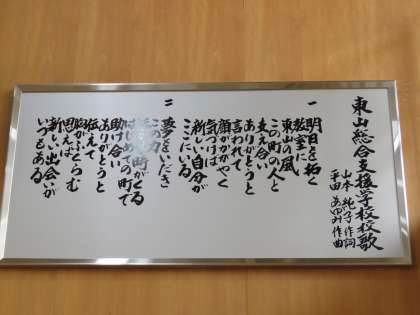 東山総合支援学校校歌
山本 純子 作詞
平田 あゆみ 作曲
一
明日を拓く
教室に
東山の風
この町の人と
支え合い
ありがとうと
言われて
顔がかがやく
気づけば
新しい自分が
ここにいる
二
夢をいだき
この力
時がくる
はじめての町で
助け合い
ありがとうと
伝えて
胸がふくらむ
思えば
新しい出会いが
いつもある